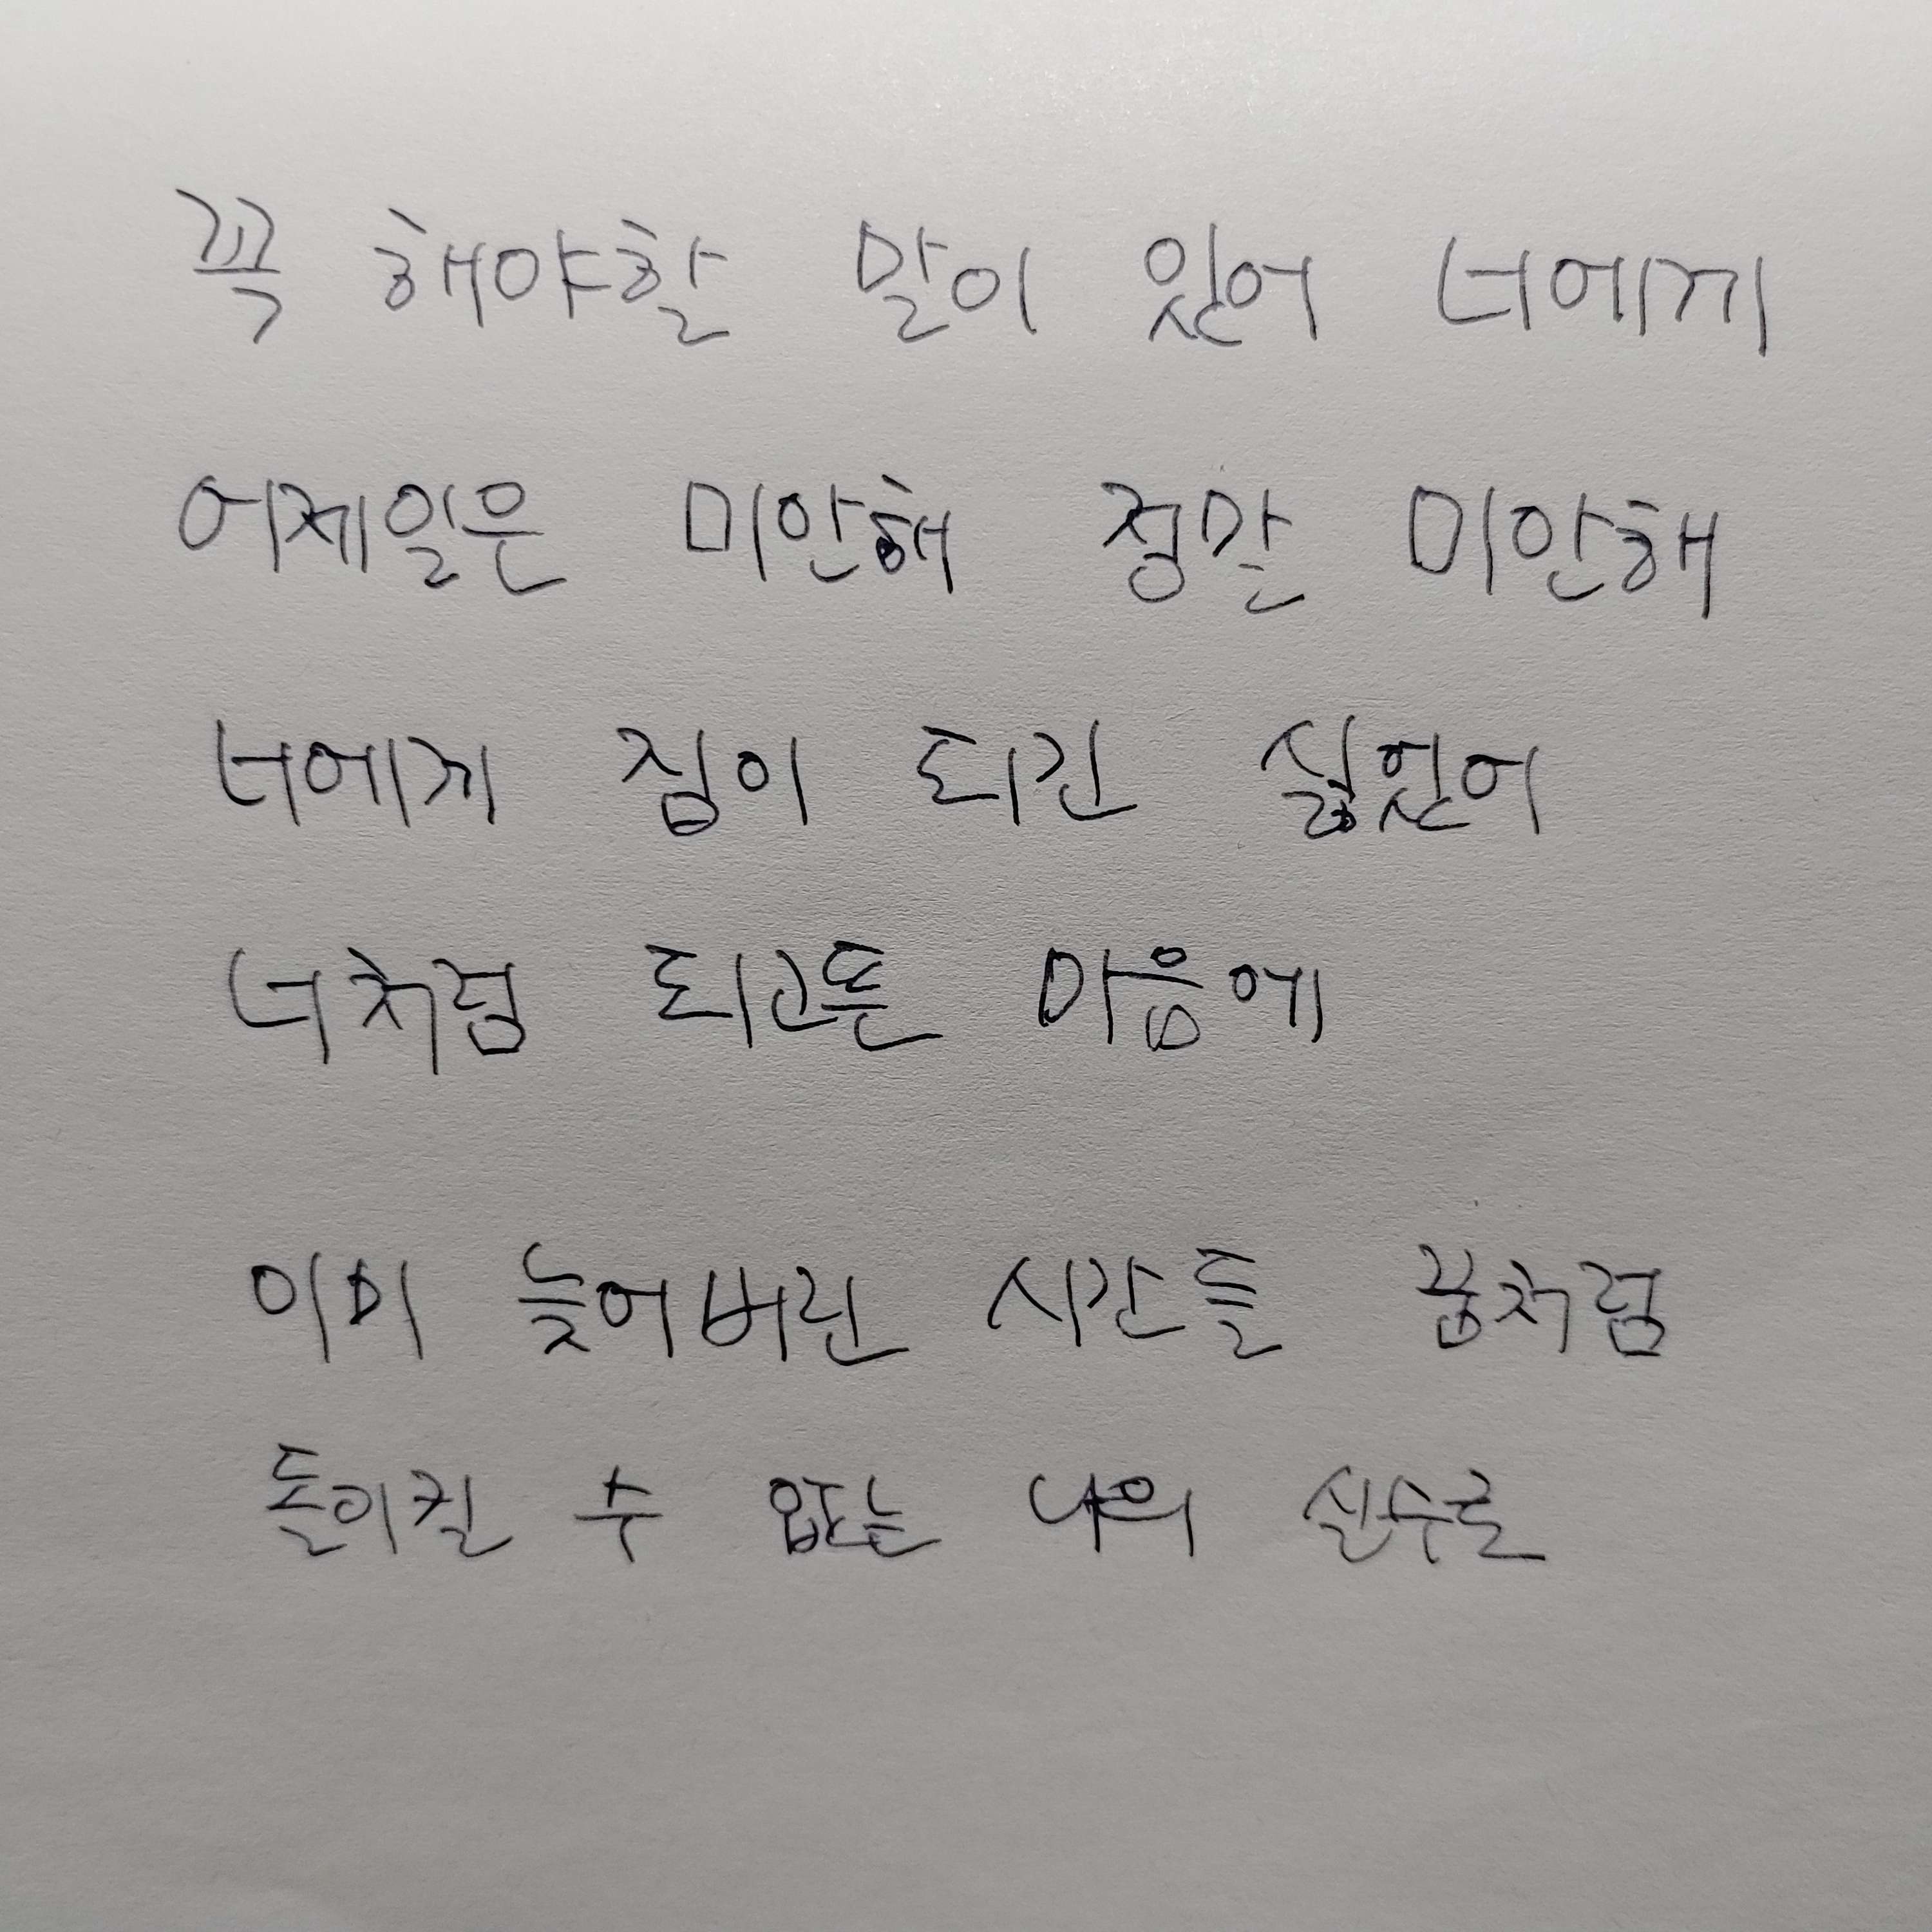 꼭 해야할 말이 있어 너에게
어제일은 미안해 정말 미안해
너에게 짐이 되긴 싫었어
너처럼 되고픈 마음에
이미 늦어버린 시간들 꿈처럼
돌이킬 수 없는 나의 실수로